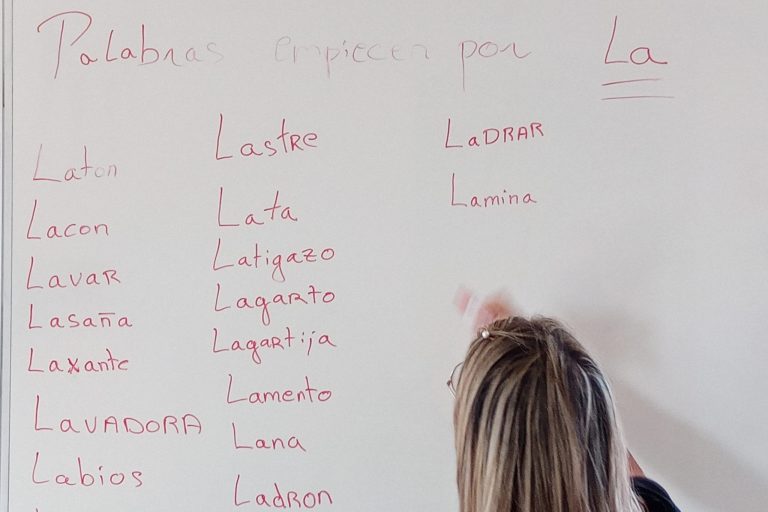 Palabras empiecen por La
Laton
Lacon
Lavar
Lasaña
Laxante
LAVADORA
Labios
Lastre
Lata
Latigazo
Lagarto
Lagartija
Lamento
Lana
Ladron
LaDRAR
Lamina